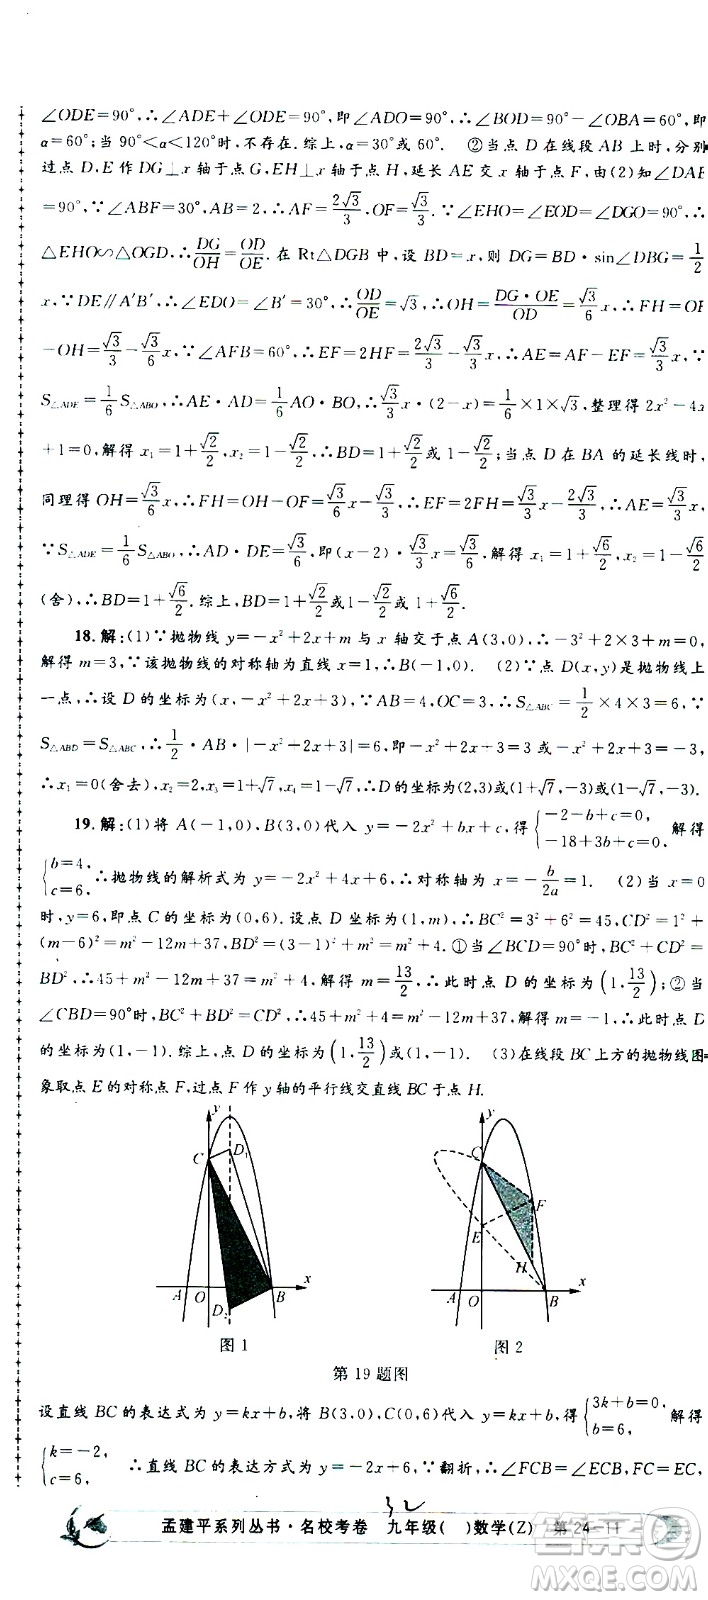 ∠ODE=90°,∴∠ADE+∠ODE=90°,即∠ADO=90°,∴∠BOD=90°-∠OBA=60°,即
α=60°;当 90°<α<120°时,不存在.综上,α=30°或 60°. ②当点 D 在线段 AB 上时,分别
过点 D,E 作 DG⊥x 轴于点 G,EH⊥x 轴于点 H,延长 AE 交 x 轴于点 F,由(2)知∠DAE
=90°,∵∠ABF=30°,AB=2,∴AF=2√3/3,OF=√3/3.∵∠EHO=∠EOD=∠DGO=90°,∴
△EHO∽△OGD,∴DG/OH=OD/OE.在 Rt△DGB 中,设 BD=x,则 DG=BD·sin∠DBG=1/2
x,∵DE∥A′B′,∴∠EDO=∠B′=30°,∴OD/OE=√3,∴OH=DG·OE/OD=√3/6x,∴FH=OF
-OH=√3/3-√3/6x,∵∠AFB=60°,∴EF=2HF=2√3/3-√3/3x,∴AE=AF-EF=√3/3x,∵
S△ADE=1/6S△ABO,∴AE·AD=1/6AO·BO,∴√3/3x·(2-x)=1/6×1×√3,整理得 2x²-4x
+1=0,解得 x₁=1+√2/2,x₂=1-√2/2,∴BD=1+√2/2或 1-√2/2;当点 D 在 BA 的延长线时,
同理得 OH=√3/6x,∴FH=OH-OF=√3/6x-√3/3,∴EF=2FH=√3/3x-2√3/3,∴AE=√3/3x,
∵S△ADE=1/6S△ABO,∴AD·DE=√3/6,即(x-2)·√3/3x=√3/6,解得 x₁=1+√6/2,x₂=1-√6/2
(舍),∴BD=1+√6/2.综上,BD=1+√2/2或 1-√2/2或 1+√6/2.
18.解:(1)∵抛物线 y=-x²+2x+m 与 x 轴交于点 A(3,0),∴-3²+2×3+m=0,
解得 m=3,∵该抛物线的对称轴为直线 x=1,∴B(-1,0). (2)∵点 D(x,y)是抛物线上
一点,∴设 D 的坐标为(x,-x²+2x+3),∵AB=4,OC=3,∴S△ABC=1/2×4×3=6,∵
S△ABD=S△ABC,∴1/2·AB·|-x²+2x+3|=6,即-x²+2x+3=3 或-x²+2x+3=-3,
∴x₁=0(舍去),x₂=2,x₃=1+√7,x₄=1-√7,∴D 的坐标为(2,3)或(1+√7,-3)或(1-√7,-3).
19.解:(1)将 A(-1,0),B(3,0)代入 y=-2x²+bx+c,得{-2-b+c=0, -18+3b+c=0, 解得
{b=4, c=6, ∴抛物线的解析式为 y=-2x²+4x+6,∴对称轴为 x=-b/2a=1. (2)当 x=0
时,y=6,即点 C 的坐标为(0,6).设点 D 坐标为(1,m),∴BC²=3²+6²=45,CD²=1²+
(m-6)²=m²-12m+37,BD²=(3-1)²+m²=m²+4.①当∠BCD=90°时,BC²+CD²=
BD²,∴45+m²-12m+37=m²+4,解得 m=13/2,∴此时点 D 的坐标为(1,13/2);②当
∠CBD=90°时,BC²+BD²=CD²,∴45+m²+4=m²-12m+37,解得 m=-1,∴此时点 D
的坐标为(1,-1).综上,点 D 的坐标为(1,13/2)或(1,-1). (3)在线段 BC 上方的抛物线图
象取点 E 的对称点 F,过点 F 作 y 轴的平行线交直线 BC 于点 H.
y
C
D₁
A
O
B
x
D₂
图 1
y
C
F
E
H
A
O
B
x
图 2
第 19 题图
设直线 BC 的表达式为 y=kx+b,将 B(3,0),C(0,6)代入 y=kx+b,得{3k+b=0, b=6, 解得
{k=-2, c=6, ∴直线 BC 的表达方式为 y=-2x+6,∵翻折,∴∠FCB=∠ECB,FC=EC,
32
孟建平系列丛书·名校考卷 九年级( )数学(Z) 第 24-11
答案圈
MXQE.COM